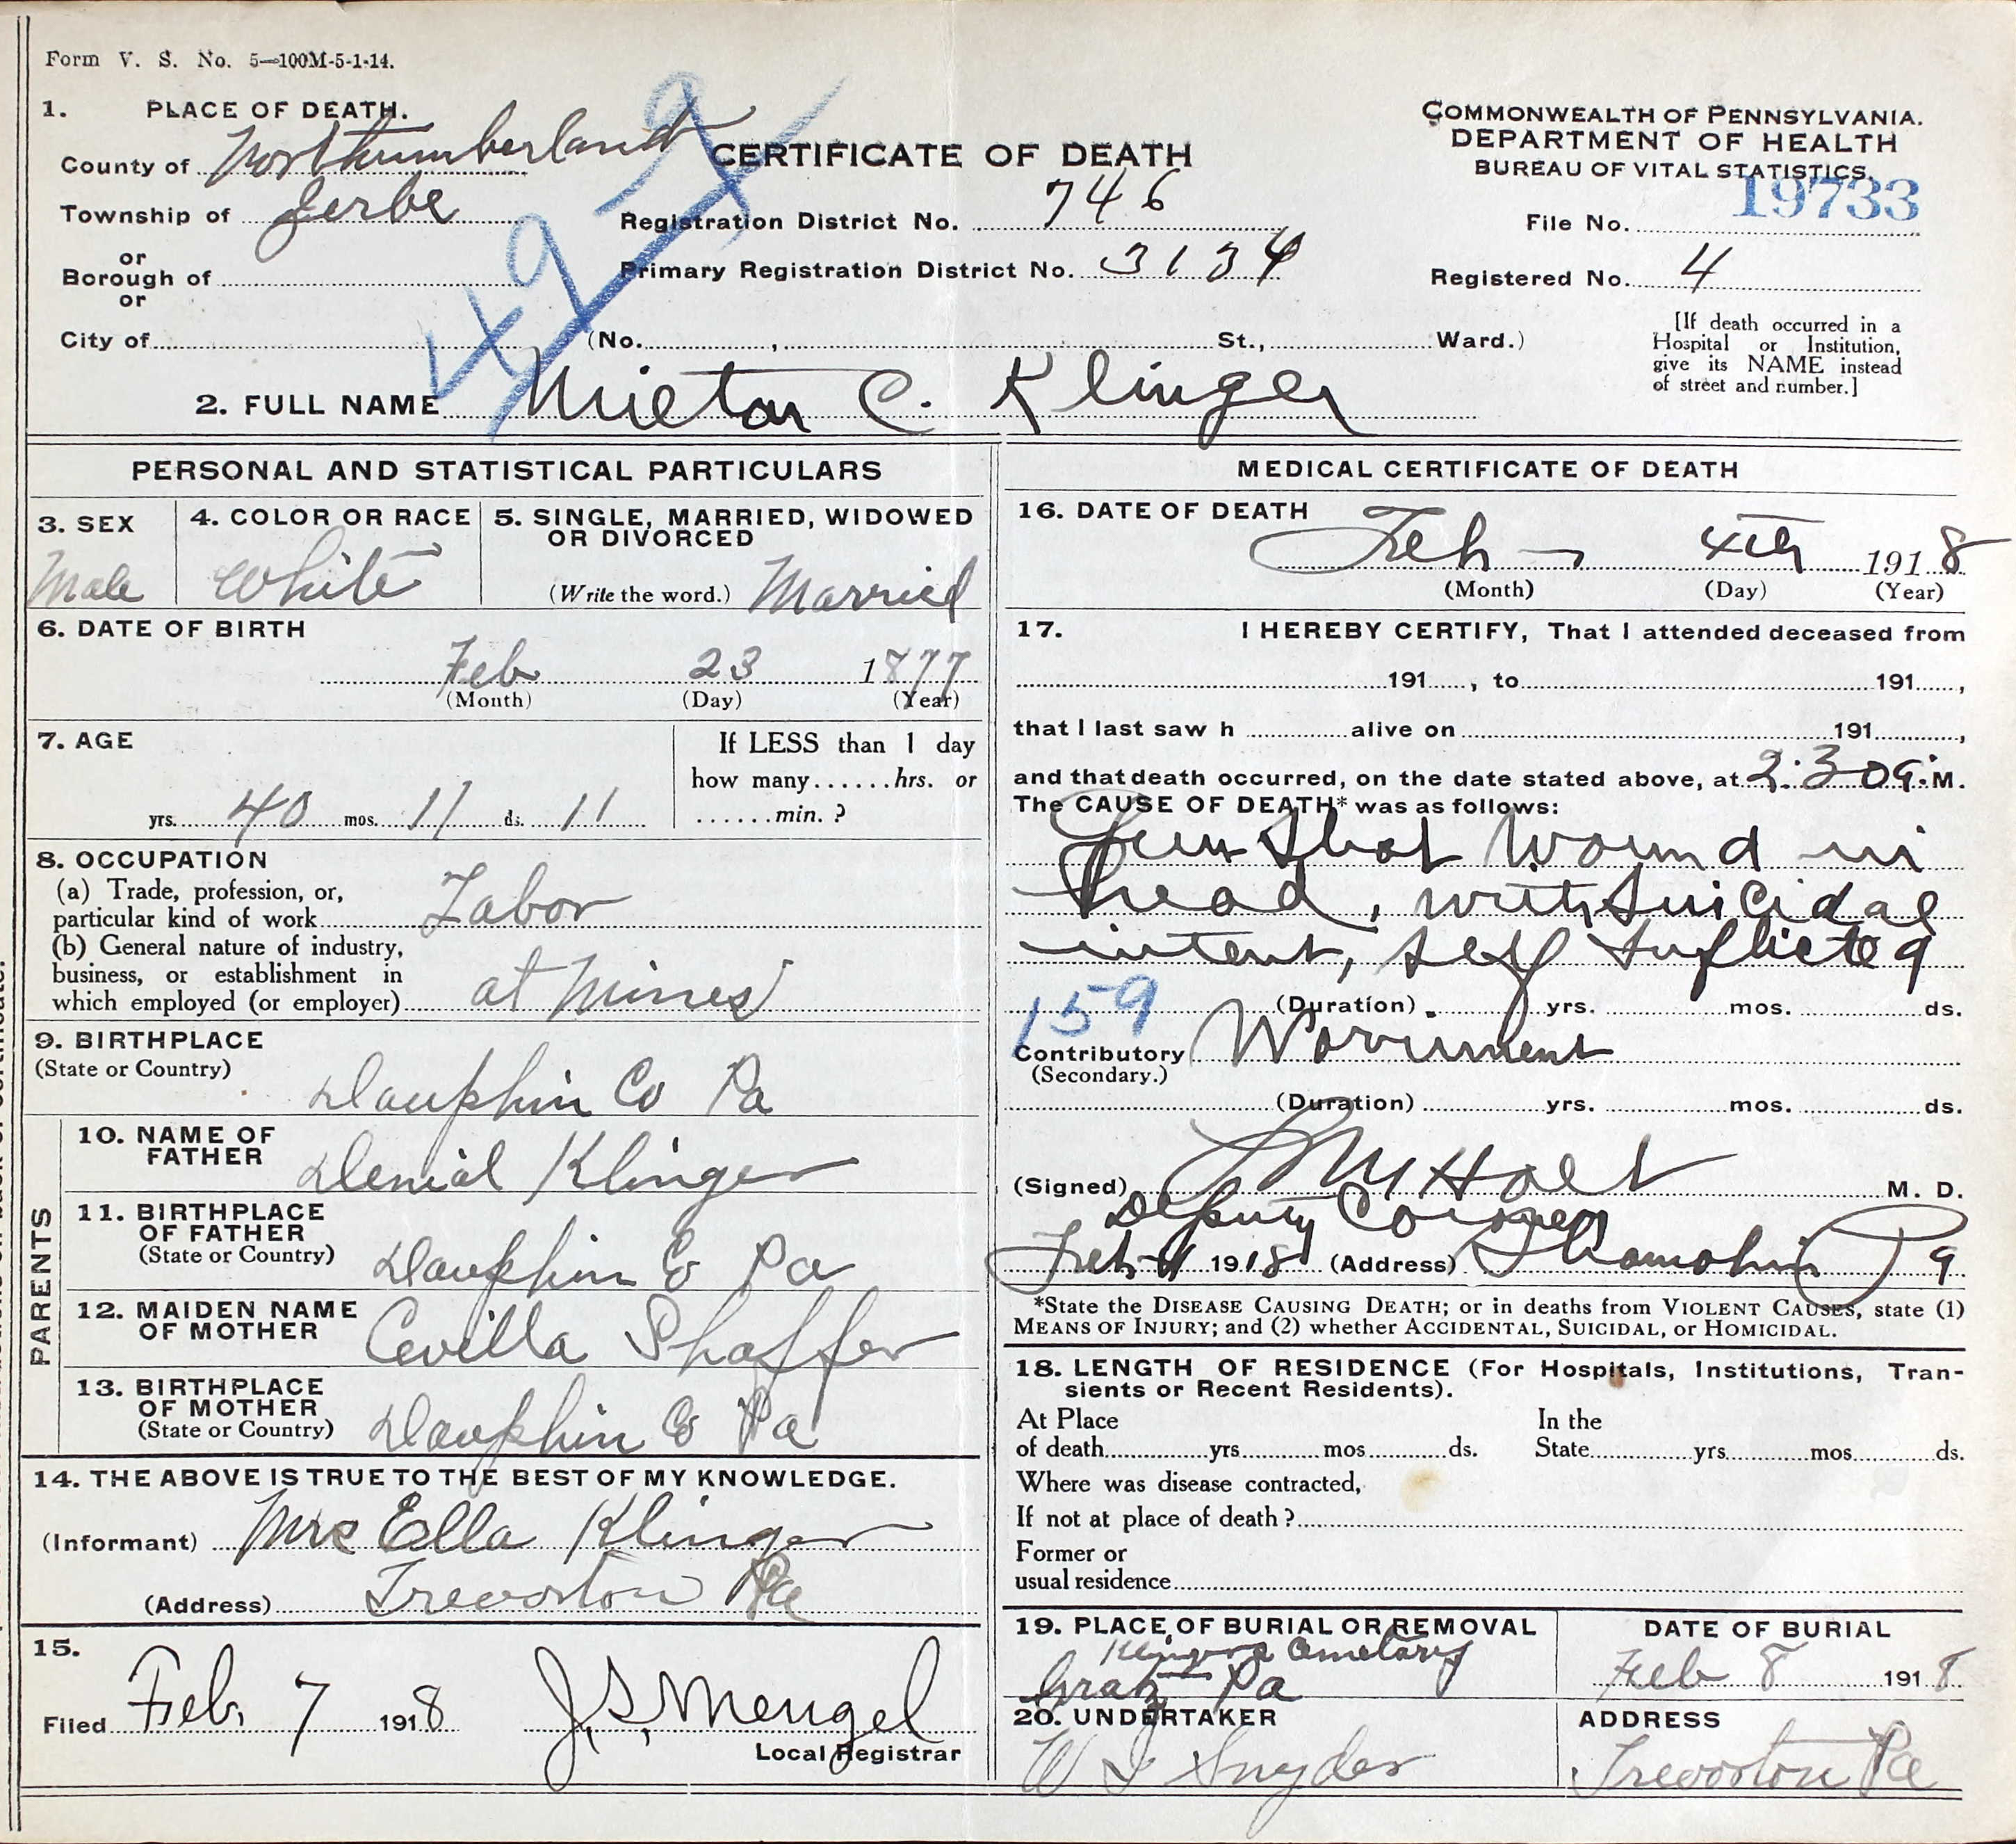 Form V. S. No. 5—100M-5-1-14.
1. PLACE OF DEATH.
County of Northumberland
Township of Zerbe
or
Borough of
or
City of
CERTIFICATE OF DEATH
Registration District No. 746
Primary Registration District No. 3134
(No. , St., Ward.)
COMMONWEALTH OF PENNSYLVANIA.
DEPARTMENT OF HEALTH
BUREAU OF VITAL STATISTICS.
19733
File No.
Registered No. 4
[If death occurred in a
Hospital or Institution,
give its NAME instead
of street and number.]
49-9
2. FULL NAME C. Klinger
PERSONAL AND STATISTICAL PARTICULARS
3. SEX
Male
4. COLOR OR RACE
White
5. SINGLE, MARRIED, WIDOWED
OR DIVORCED
(Write the word.) Married
6. DATE OF BIRTH
Feb 23 1877
(Month) (Day) (Year)
7. AGE
yrs. 40 mos. 11 ds. 11
If LESS than 1 day
how many......hrs. or
......min. ?
8. OCCUPATION
(a) Trade, profession, or,
particular kind of work Labor
(b) General nature of industry,
business, or establishment in
which employed (or employer) at Mines
9. BIRTHPLACE
(State or Country)
Dauphin Co Pa
PARENTS
10. NAME OF
FATHER Denial Klinger
11. BIRTHPLACE
OF FATHER
(State or Country) Dauphin Co Pa
12. MAIDEN NAME
OF MOTHER Cevilla Shaffer
13. BIRTHPLACE
OF MOTHER
(State or Country) Dauphin Co Pa
14. THE ABOVE IS TRUE TO THE BEST OF MY KNOWLEDGE.
(Informant) Mrs Ella Klinger
(Address) Trevorton Pa
15.
Filed Feb. 7 1918 J. S. Mengel
Local Registrar
MEDICAL CERTIFICATE OF DEATH
16. DATE OF DEATH
Feb - 4th 1918
(Month) (Day) (Year)
17. I HEREBY CERTIFY, That I attended deceased from
191 , to 191 ,
that I last saw h alive on 191 ,
and that death occurred, on the date stated above, at 2:30 a. M.
The CAUSE OF DEATH* was as follows:
Gun Shot Wound in
head, with Suicidal
intent, self Inflicted
159
(Duration) yrs. mos. ds.
Contributory Worriment
(Secondary.)
(Duration) yrs. mos. ds.
(Signed) M. D.
Deputy Coroner
Feb 4 1918 (Address) Shamokin Pa
*State the DISEASE CAUSING DEATH; or in deaths from VIOLENT CAUSES, state (1)
MEANS OF INJURY; and (2) whether ACCIDENTAL, SUICIDAL, or HOMICIDAL.
18. LENGTH OF RESIDENCE (For Hospitals, Institutions, Tran-
sients or Recent Residents).
At Place In the
of death yrs. mos. ds. State yrs. mos. ds.
Where was disease contracted,
If not at place of death ?
Former or
usual residence
19. PLACE OF BURIAL OR REMOVAL
Klingers Cemetary
Gratz Pa
DATE OF BURIAL
Feb 8 1918
20. UNDERTAKER
W I Snyder
ADDRESS
Trevorton Pa